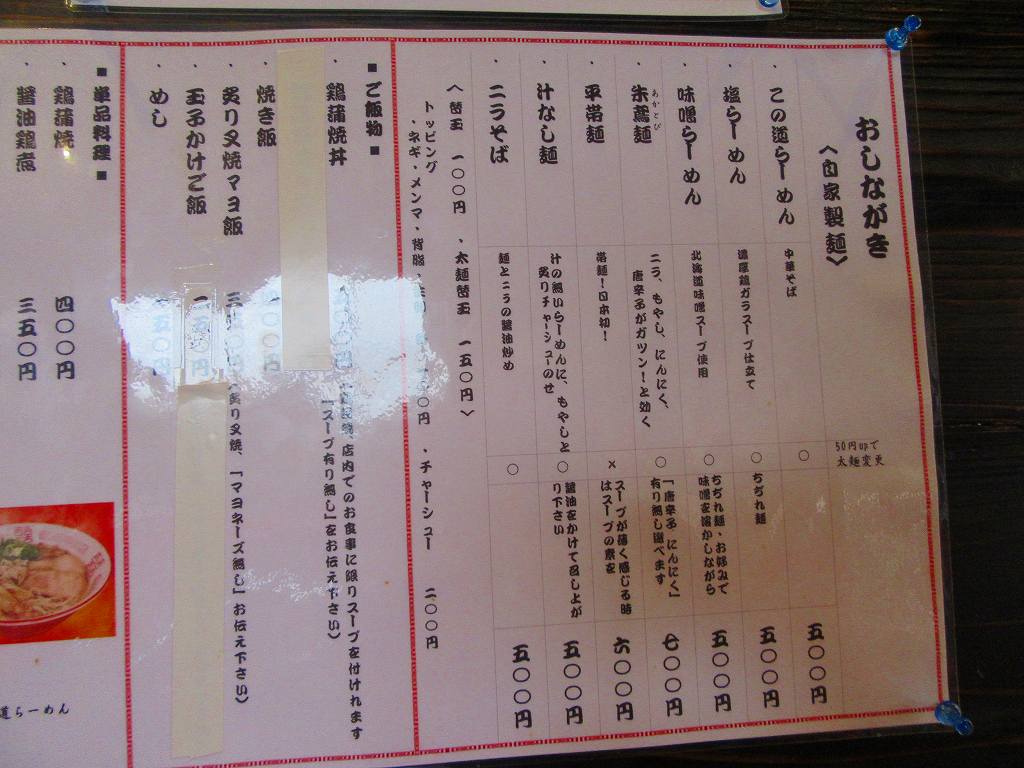 おしながき
〈自家製麺〉
50円upで
太麺変更
・この道らーめん 中華そば ○ 五〇〇円
・塩らーめん 濃厚鶏ガラスープ仕立て ○ ちぢれ麺 五〇〇円
・味噌らーめん 北海道味噌スープ使用 ○ ちぢれ麺・お好みで
味噌を溶かしながら 五〇〇円
あかとび
・朱鳶麺 ニラ、もやし、にんにく、
唐辛子がガツン！と効く ○ 「唐辛子、にんにく」
有り無し選べます 七〇〇円
・平帯麺 帯麺！日本初！ × スープが薄く感じる時
はスープの素を 六〇〇円
・汁なし麺 汁の無いらーめんに、もやしと
炙りチャーシューのせ ○ 醤油をかけて召し上が
り下さい 五〇〇円
・ニラそば 麺とニラの醤油炒め ○ 五〇〇円
〈替玉 一〇〇円 ・太麺替玉 一五〇円〉
トッピング
・ネギ・メンマ・背脂・ 円 ・チャーシュー 二〇〇円
■ご飯物■
・鶏蒲焼丼 円 店内でのお食事に限りスープを付けれます
「スープ有り無し」をお伝え下さい〉
・焼き飯 〇〇円
・炙りヌ焼マヨ飯 円 炙りヌ焼、「マヨネーズ無し」お伝え下さい〉
・玉子かけご飯 円
・めし 五〇円
■単品料理■
・鶏蒲焼 四〇〇円
・醤油鶏煮 三五〇円
道らーめん